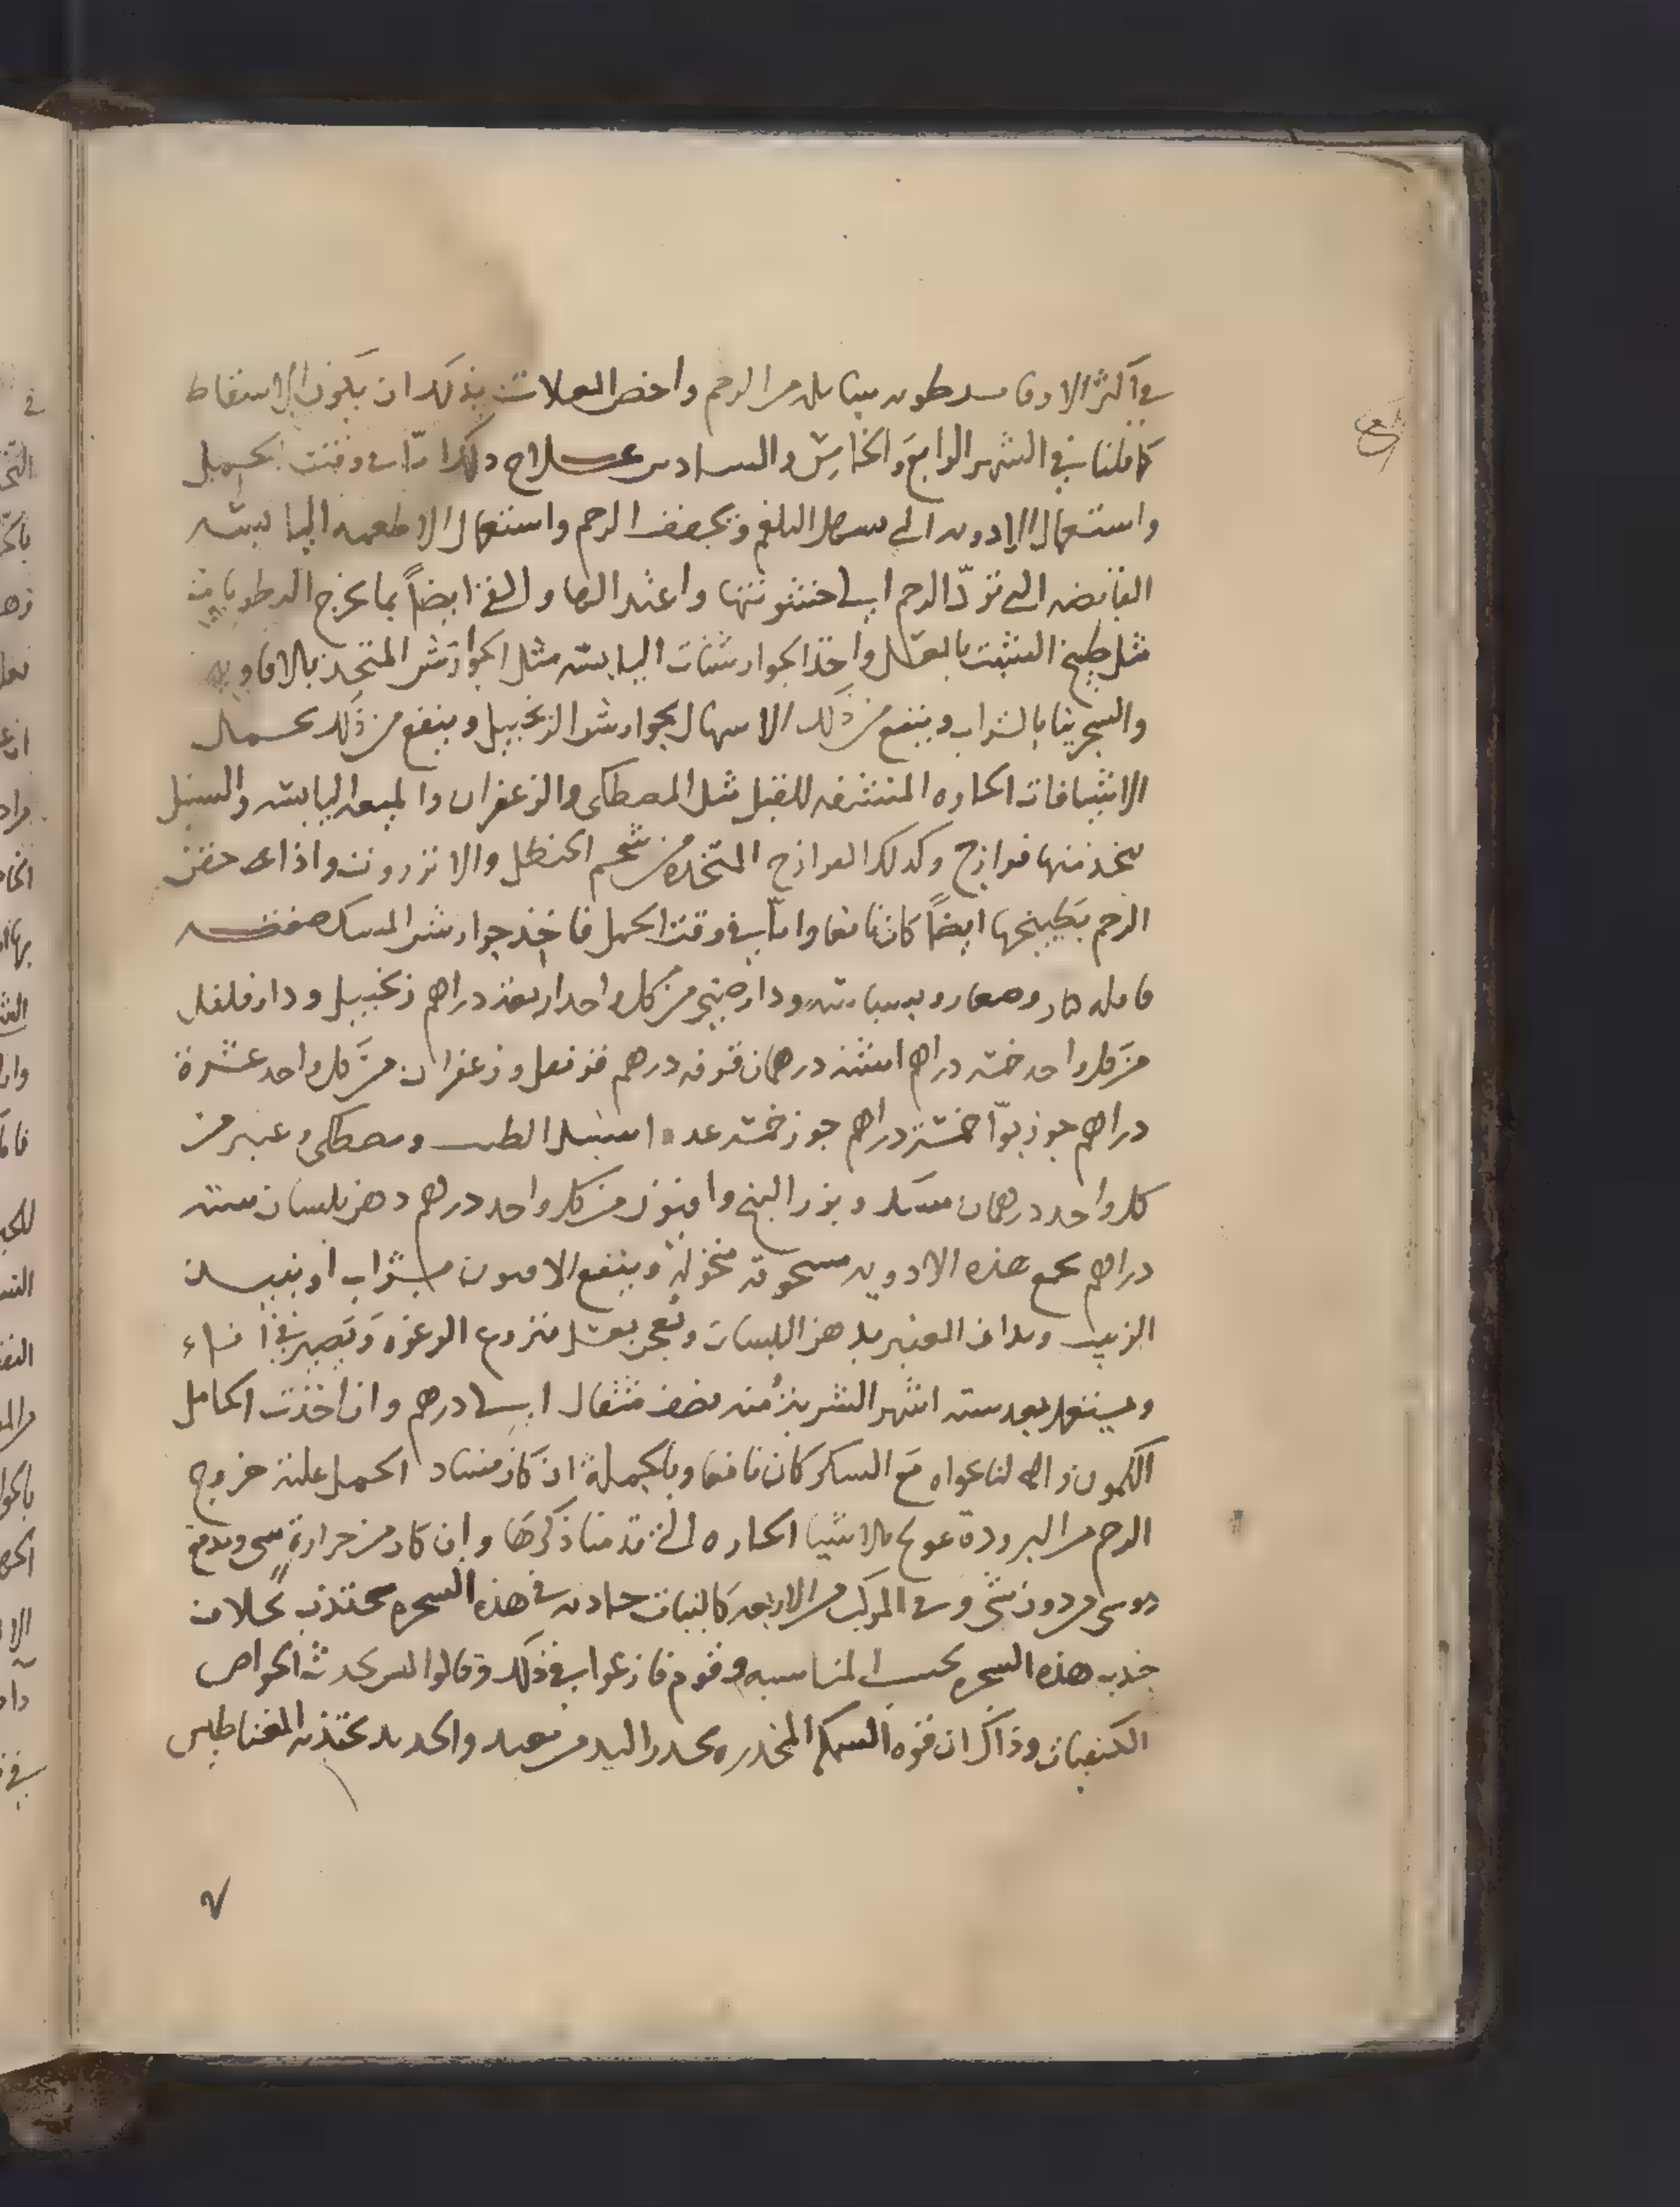 في اكثر الاوقات رطوبه سايله من الرحم واخص العلامات بذلك ان يكون الاسقاط
كما قلنا في الشهر الرابع والخامس والسادس علاج ذلك اما في وقت الحمل
واستعمال الادويه التي تسهل البلغم وتجفف الرحم واستعمال الاطعمه اليابسه
القابضه التي تردّ الرحم الي خشونتها واعتدالها والقئ ايضاً بما يخرج الرطوبات
مثل طبيخ الشبت بالعسل واخذ الجوارشنات اليابسه مثل الجوارشن المتخذ بالافاويه
والسجرينا بالشراب وينفع من ذلك الاسهال بجوارشن الزنجبيل وينفع من ذلك تحمل
الاشيافات الحاره المنشفه للقبل مثل المصطكي والزعفران والميعه اليابسه والسنبل
يتخذ منها فرازج وكذلك الفرازج المتخذه من شحم الحنظل والانزروت واذا حقن
الرحم بطبيخها ايضاً كان نافعا واما في وقت الحمل فاخذ جوارشن المسك صفته
قاقله كبار وصغار وبسباسه ودارصيني من كل واحد اربعة دراهم زنجبيل ودارفلفل
من كل واحد خمسه دراهم اشنه درهمان قرفه درهم قرنفل وزعفران من كل واحد عشرة
دراهم جوز بوّا خمسة دراهم جوز خمسه عددا سنبل الطيب ومصطكي وعنبر من
كل واحد درهمان مسك وبزر البنج وافيون من كل واحد درهم دهن بلسان سته
دراهم تجمع هذه الادويه مسحوقه منخولة وينقع الافيون بشراب او نبيذ
الزبيب ويداف العنبر بدهن البلسان وتعجن بعسل منزوع الرغوه وتصير في اناء
ويستعمل بعد سته اشهر الشربة منه نصف مثقال الي درهم وان اخذت الحامل
الكموني والنانخواه مع السكر كان نافعا وبالجملة ان كان فساد الحمل علته خروج
الرحم من البرودة عولج بالاشيا الحاره التي قدمنا ذكرها وان كان من حرارة
دون شي وفي المركب من الاربعه كالنبات جاذبه في هذه الشجره تجتذب بخلاف
جذب هذه الشجره بحسب المناسبه وقوم نازعوا في ذلك وقالوا ليس تحدث الخواص
الكيفيات وذاك ان قوه السمكه المخدره تخدر اليد من بعيد والحديد يجتذبه المغناطيس